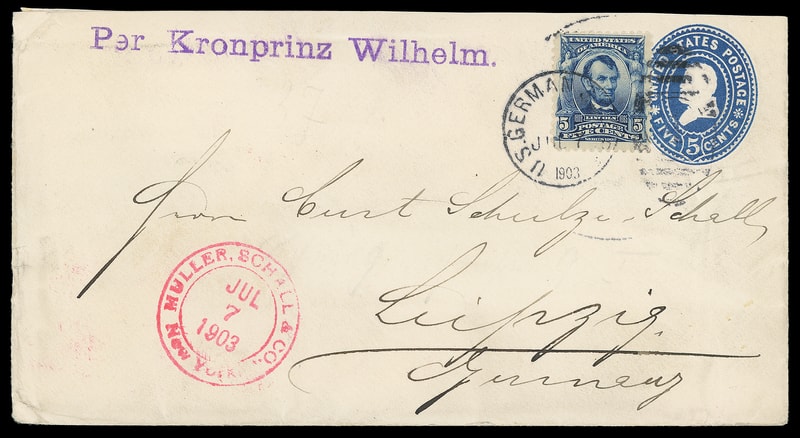 Per Kronprinz Wilhelm.
UNITED STATES
OF AMERICA
LINCOLN
5 POSTAGE 5
FIVE CENTS
UNITED STATES POSTAGE
FIVE 5 CENTS
U.S. GERMAN
JUL 7
1903
Herrn Curt Schultze-Schall
Leipzig.
Germany
MULLER, SCHALL & CO.
JUL
7
1903
New York